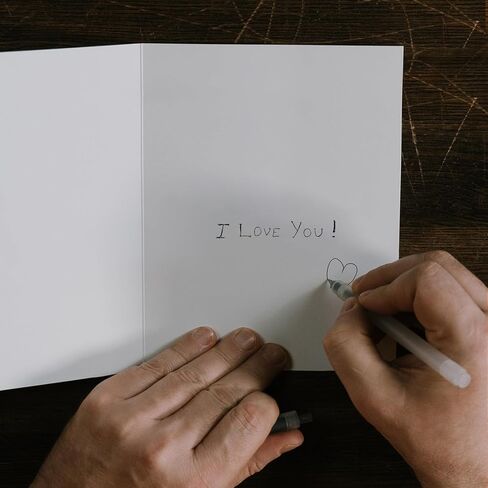 I Love You!